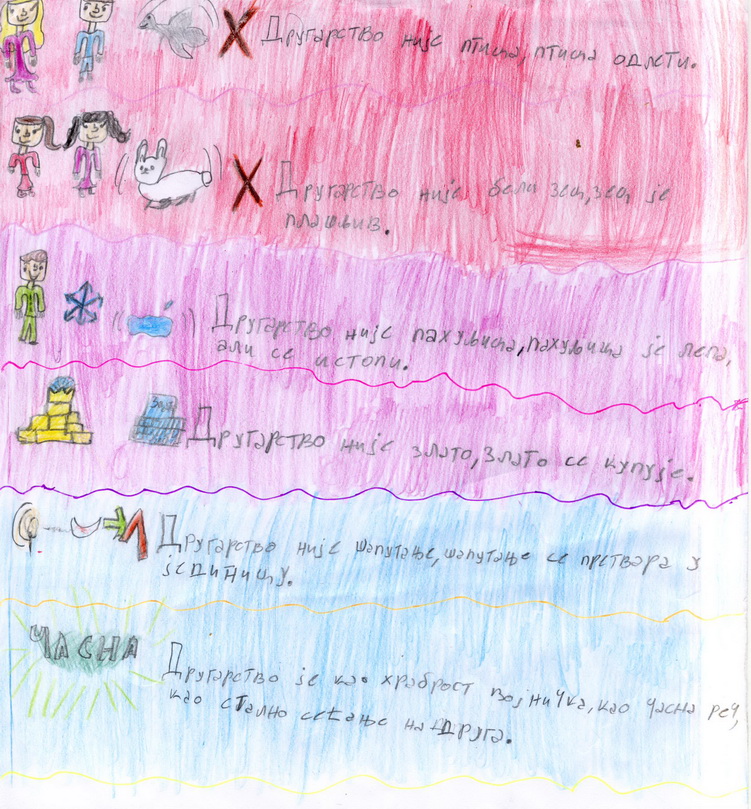 Другарство није птица, птица одлети.
Другарство није бели зец, зец је
плашљив.
Другарство није пахуљица, пахуљица је лепа,
али се истопи.
Другарство није злато, злато се купује.
Другарство није шапутање, шапутање се претвара у
јединицу.
ЧАСНА
Другарство је као храброст војничка, као часна реч,
као стално сећање на друга.